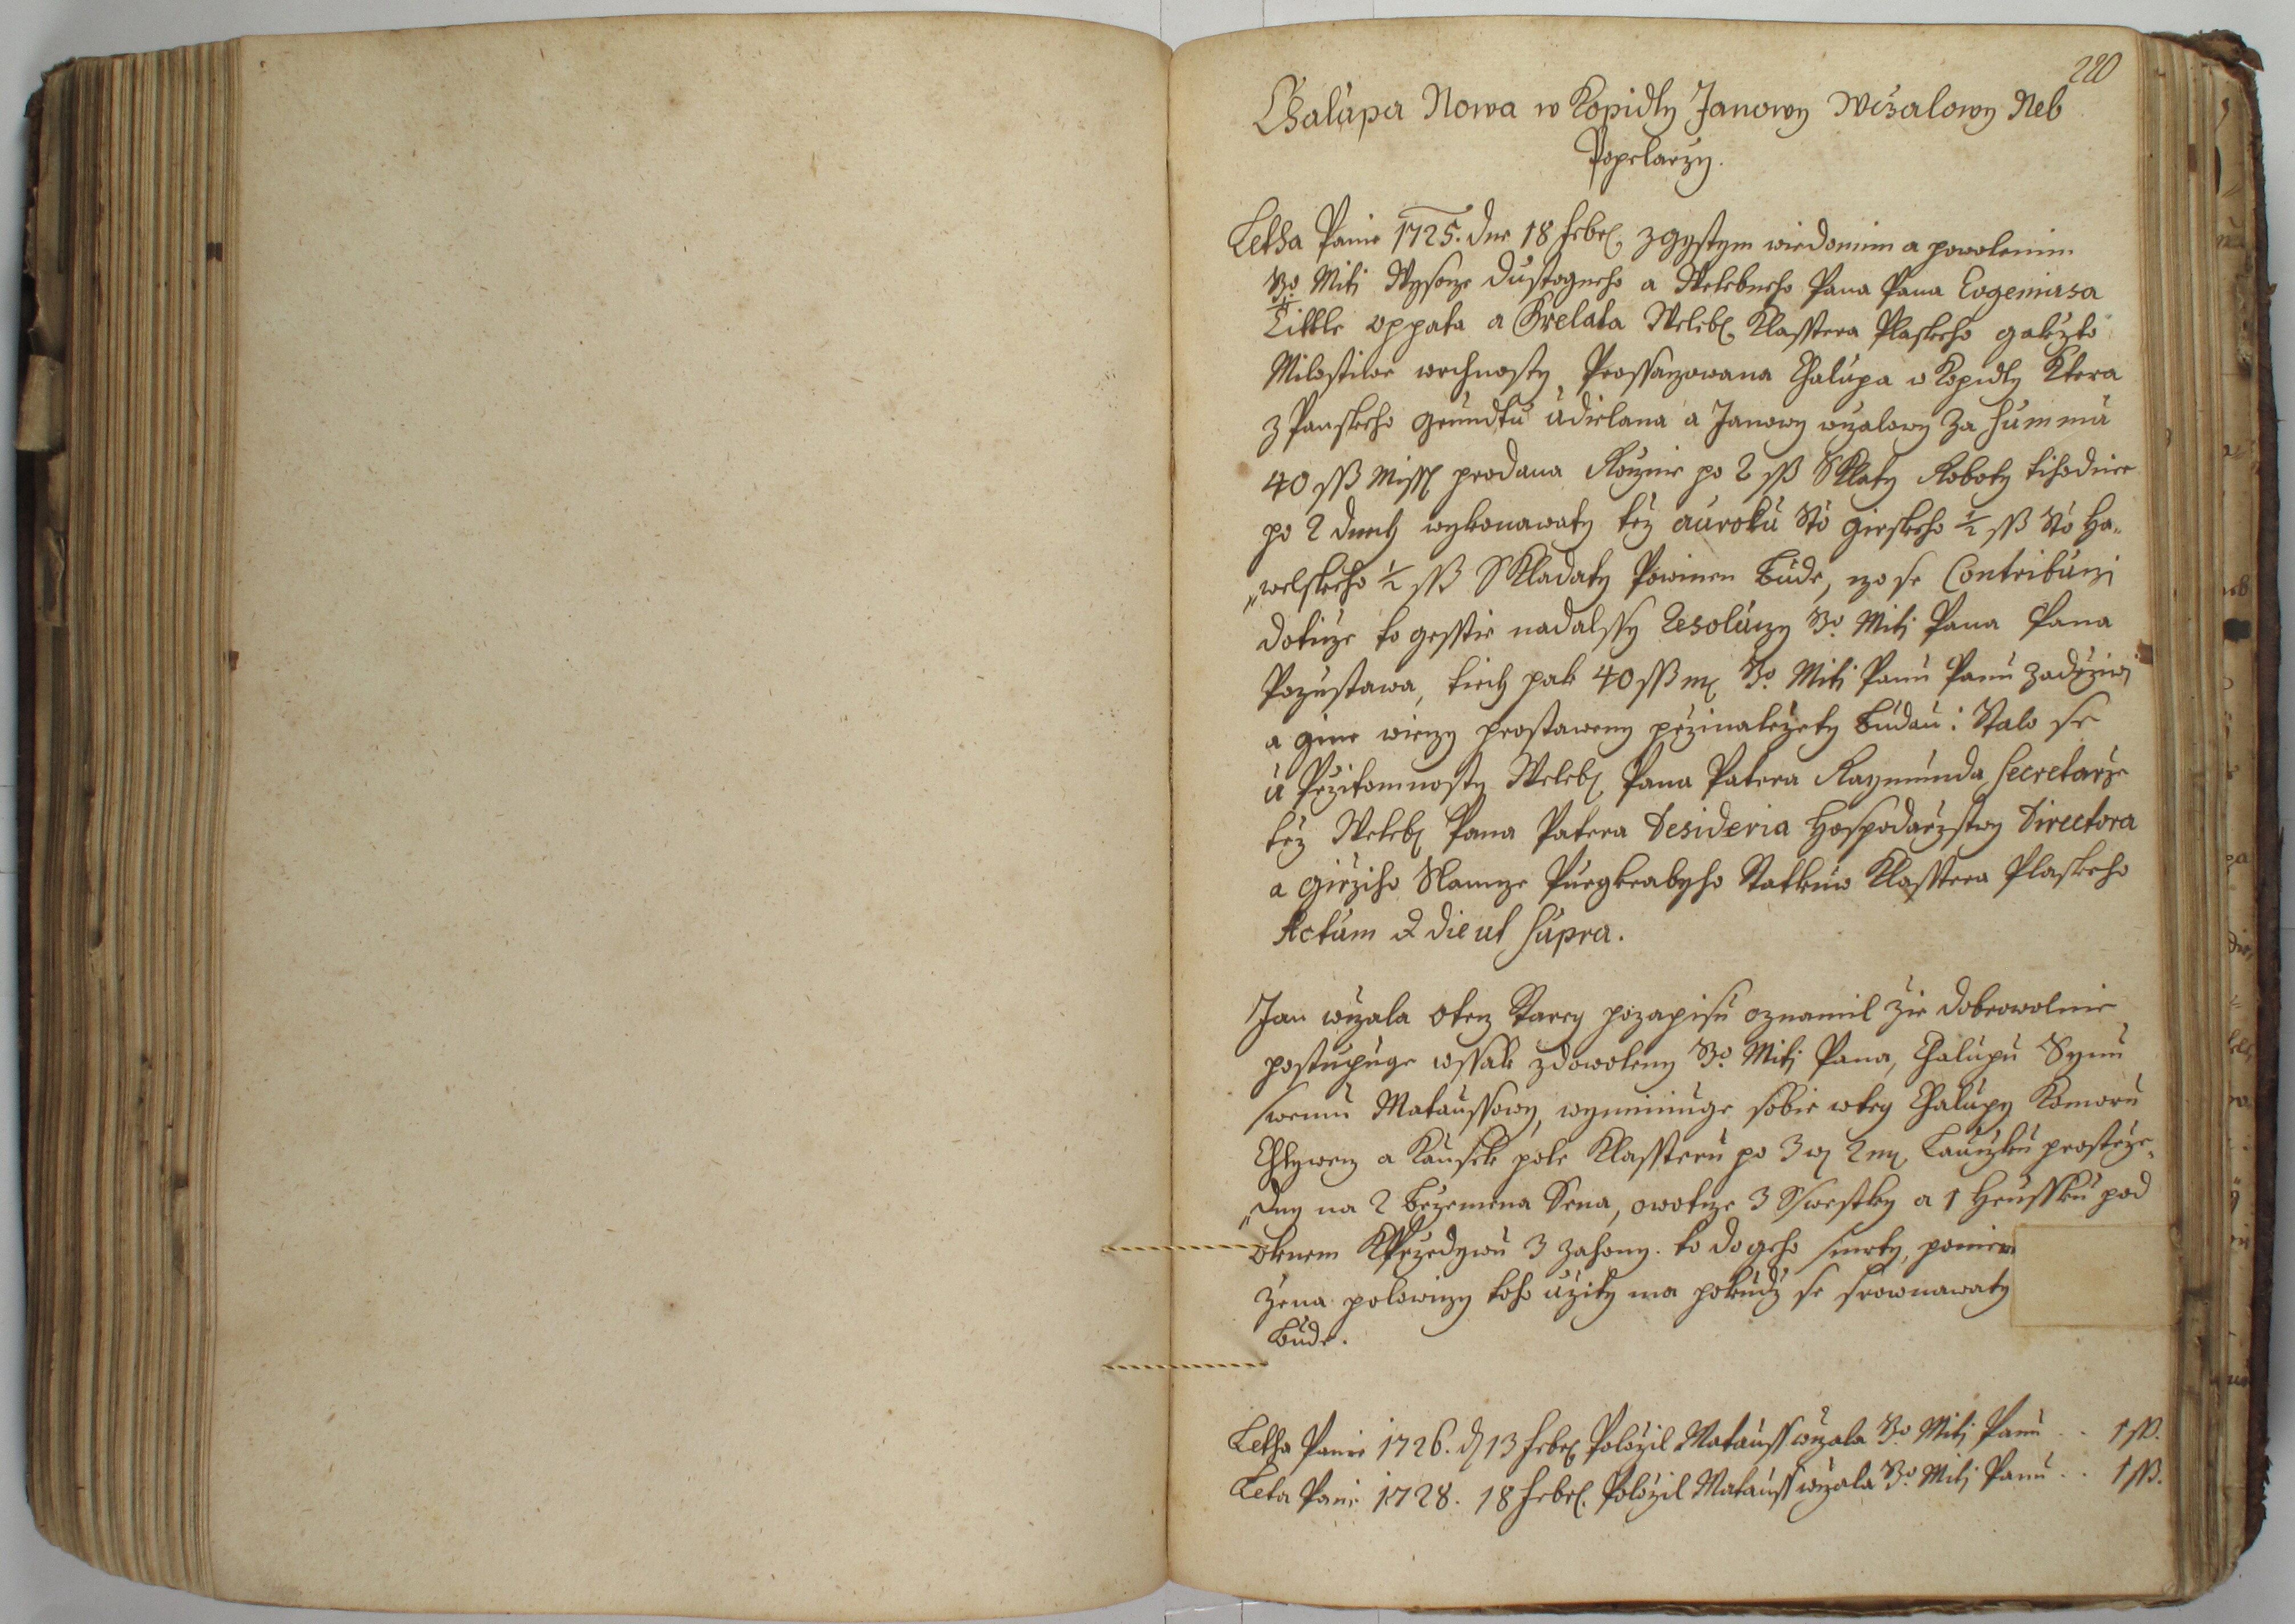 220
Chalupa Nowa w Kopidly Janowy Wižalowy Neb
Popelarzy.
Letha Panie 1725. dne 18 Febr. z gystym wiedomim a powolenim
Jho Mti Wysocze Dustogneho a Welebneho Pana Pana Eugeniusa
Tittle oppata a Prelata Weleb. Klasstera Plaskeho gakžto
Milostiwe wrchnosty, Prossaczowana Chalupa w Kopidly Ktera
z Panskeho grundtu udielana a Janowy wižalowy za Summu
40 sß Miss prodana Rocznie po 2 sß Sklaty Roboty tihodnie
po 2 dnech wykonawaty též auroku Sto girskeho ½ sß Sto Ha„
„welskeho ½ sß SKladaty Powinen Bude, czo se Contribuczi
doticze to gesstie nadalssy Resoluczy Jho Mti Pana Pana
Pozustawa, tiech pak 40 sß m. Jho Mti Panu Panu
a gine wieczy prostaweny przinaležety Budau: Stalo se
u Przitomnosty Weleb. Pana Patera Raymunda Secretarže
též Weleb. Pana Patera Desideria Hospodarzstwy Directora
a Giržiho Slamze Purgkrabyho Statkuw Klasstera Plaskeho
Actum & die ut Supra.
Jan wižala otecz Starey pozapisu oznamil žie dobrowolnie
postupuge wssak zdowoleny Jho Mti Pana, Chalupu Synu
swemu Mataussowy, wyminiuge sobie wtey Chalupy Komoru
Chlywecz a Kausek pole Klassteru po 3 w 2 m. Lauczku prostrže„
„dny na 2 Bržemena Sena, owotcze 3 Sswestky a 1 Hrussku pod
oknem Kprzedywu 3 zahony. to dogeho smrty, poniew
žena polowiczy toho užity ma pokudž se srownawaty
Bude.
Letha Panie 1726. d. 13 Febr. Položil Matauss wižala Jho Mti Panu .. 1 sß.
Leta Panie 1728. 18 Febr. Položil Matauss wižala Jho Mti Panu .. 1 sß.